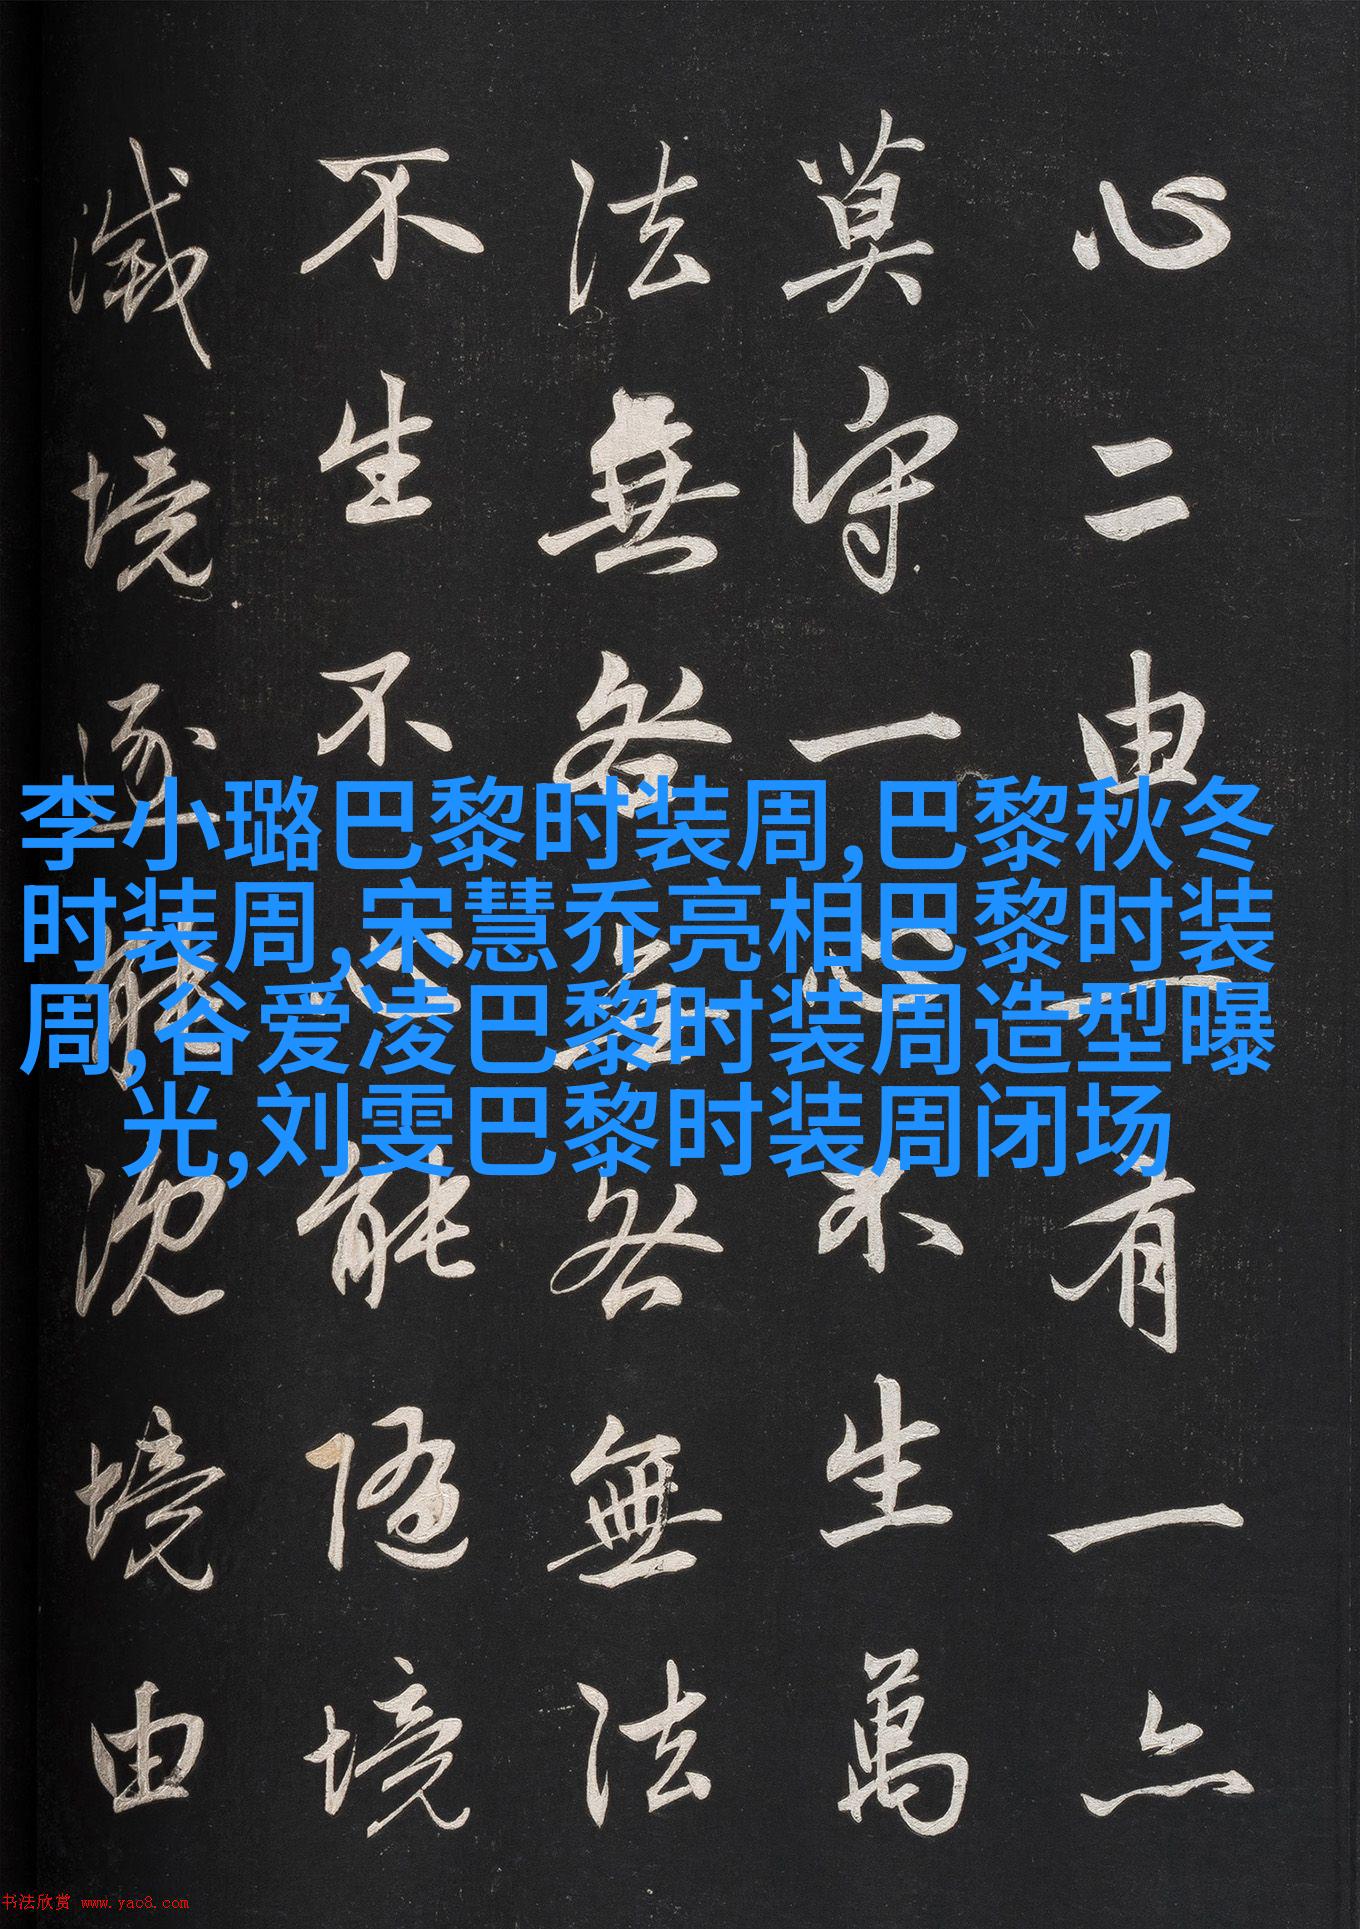 心二由一有一亦
莫守一心不生萬
法無咎無咎無法
不生不心能隨境
滅境逐能沉境由
李小璐巴黎时装周,巴黎秋冬
时装周,宋慧乔亮相巴黎时装
周,谷爱凌巴黎时装周造型曝
光,刘雯巴黎时装周闭场
书法欣赏 www.yac8.com